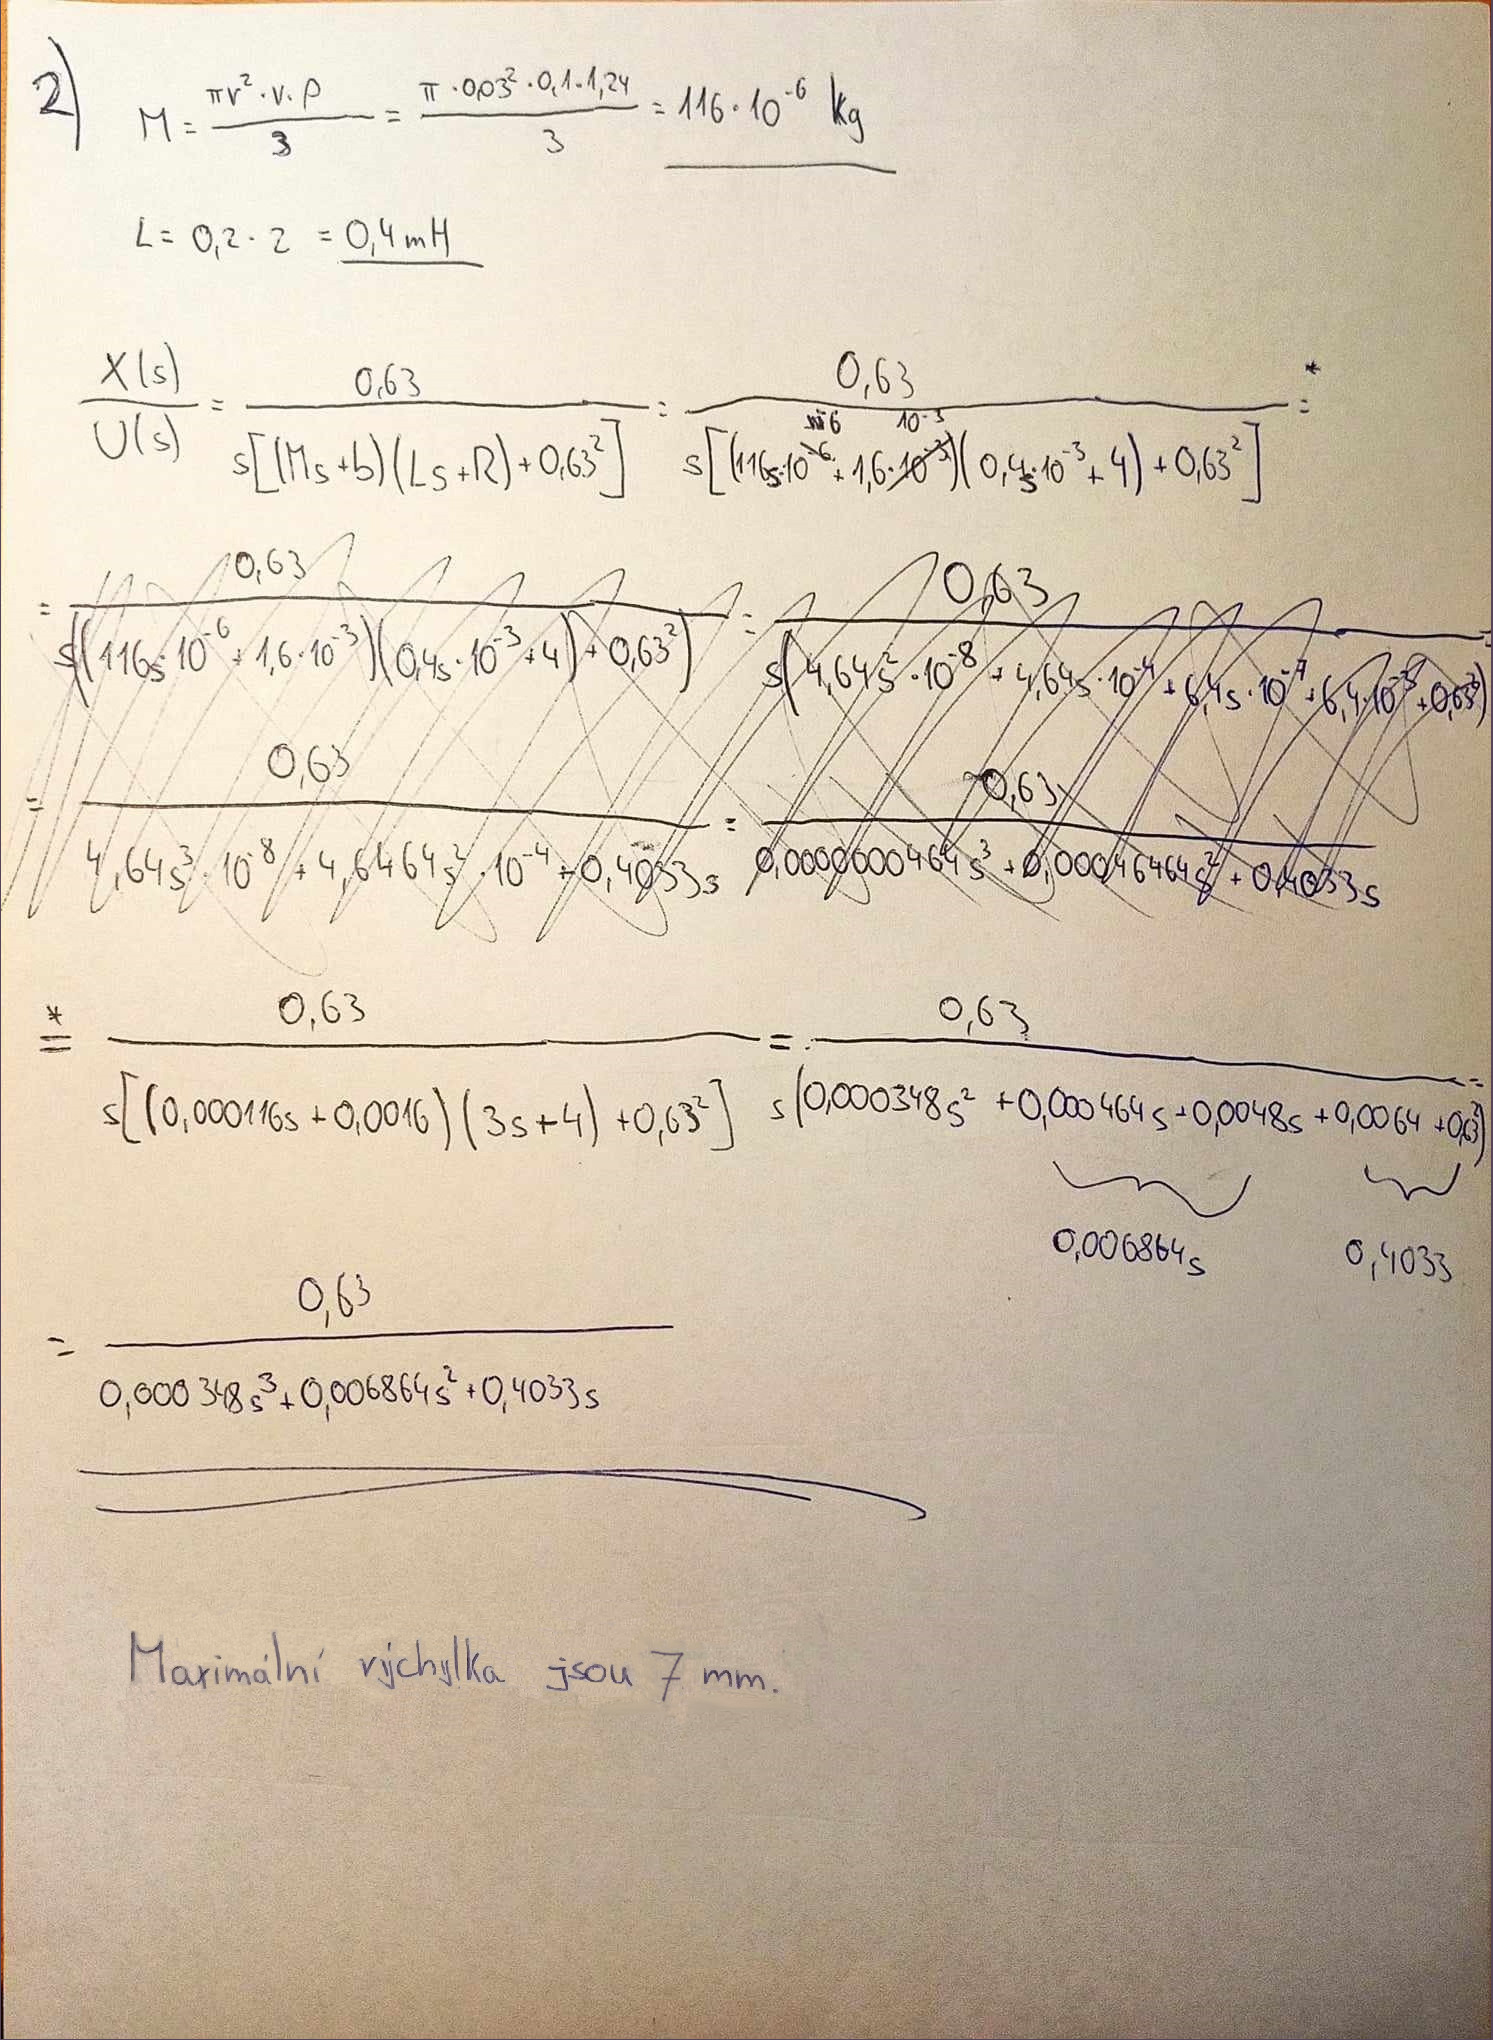 2)
M = πr²·v·ρ / 3 = π·0,03²·0,1·1,24 / 3 = 116·10⁻⁶ kg
L = 0,2·2 = 0,4 mH
X(s) / U(s) = 0,63 / s[(Ms+b)(Ls+R)+0,63²] = 0,63 / s[(116s·10⁻⁶+1,6·10⁻³)(0,4s·10⁻³+4)+0,63²] =*
= 0,63 / s((116s·10⁻⁶+1,6·10⁻³)(0,4s·10⁻³+4)+0,63²) = 0,63 / s(4,64s²·10⁻⁸+4,64s·10⁻⁴+6,4s·10⁻⁷+6,4·10⁻³+0,63²) =
= 0,63 / 4,64s³·10⁻⁸+4,6464s²·10⁻⁴+0,4033s = 0,63 / 0,0000000464s³+0,00046464s²+0,4033s
*= 0,63 / s[(0,000116s+0,0016)(3s+4)+0,63²] = 0,63 / s(0,000348s²+0,000464s+0,0048s+0,0064+0,63²) =
0,006864s 0,4033
= 0,63 / 0,000348s³+0,006864s²+0,4033s
Maximální výchylka jsou 7 mm.